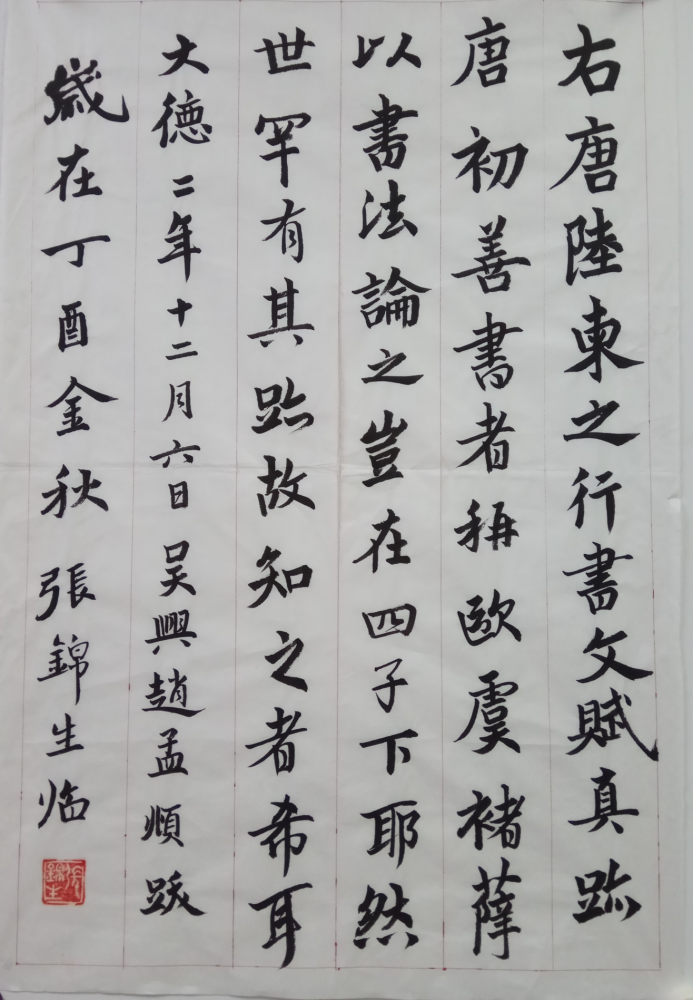 右唐陸東之行書文賦真跡
唐初善書者稱歐虞褚薛
以書法論之豈在四子下耶然
世罕有其跡故知之者希耳
大德二年十二月六日吴興趙孟順跋
歲在丁酉金秋 張錦生临
張錦生